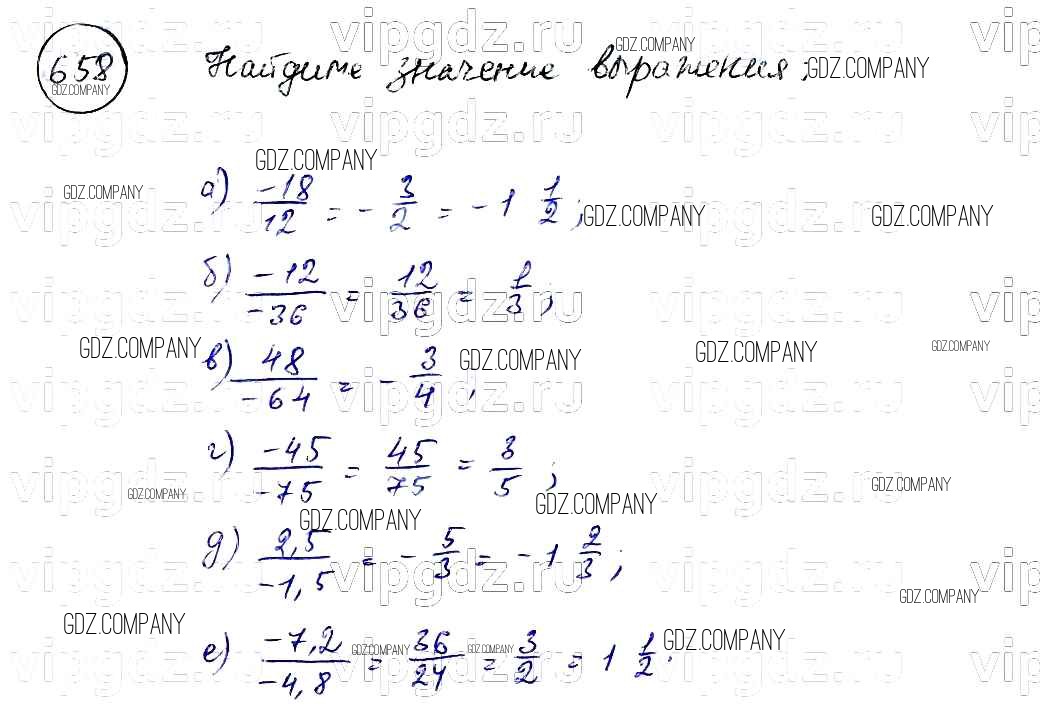 658 Найдите значение выражения:
а) -18/12 = - 3/2 = - 1 1/2 ;
б) -12/-36 = 12/36 = 1/3 ;
в) 48/-64 = - 3/4 ,
г) -45/-75 = 45/75 = 3/5 ;
д) 2,5/-1,5 = - 5/3 = - 1 2/3 ;
е) -7,2/-4,8 = 36/24 = 3/2 = 1 1/2 .
GDZ.COMPANY
vipgdz.ru